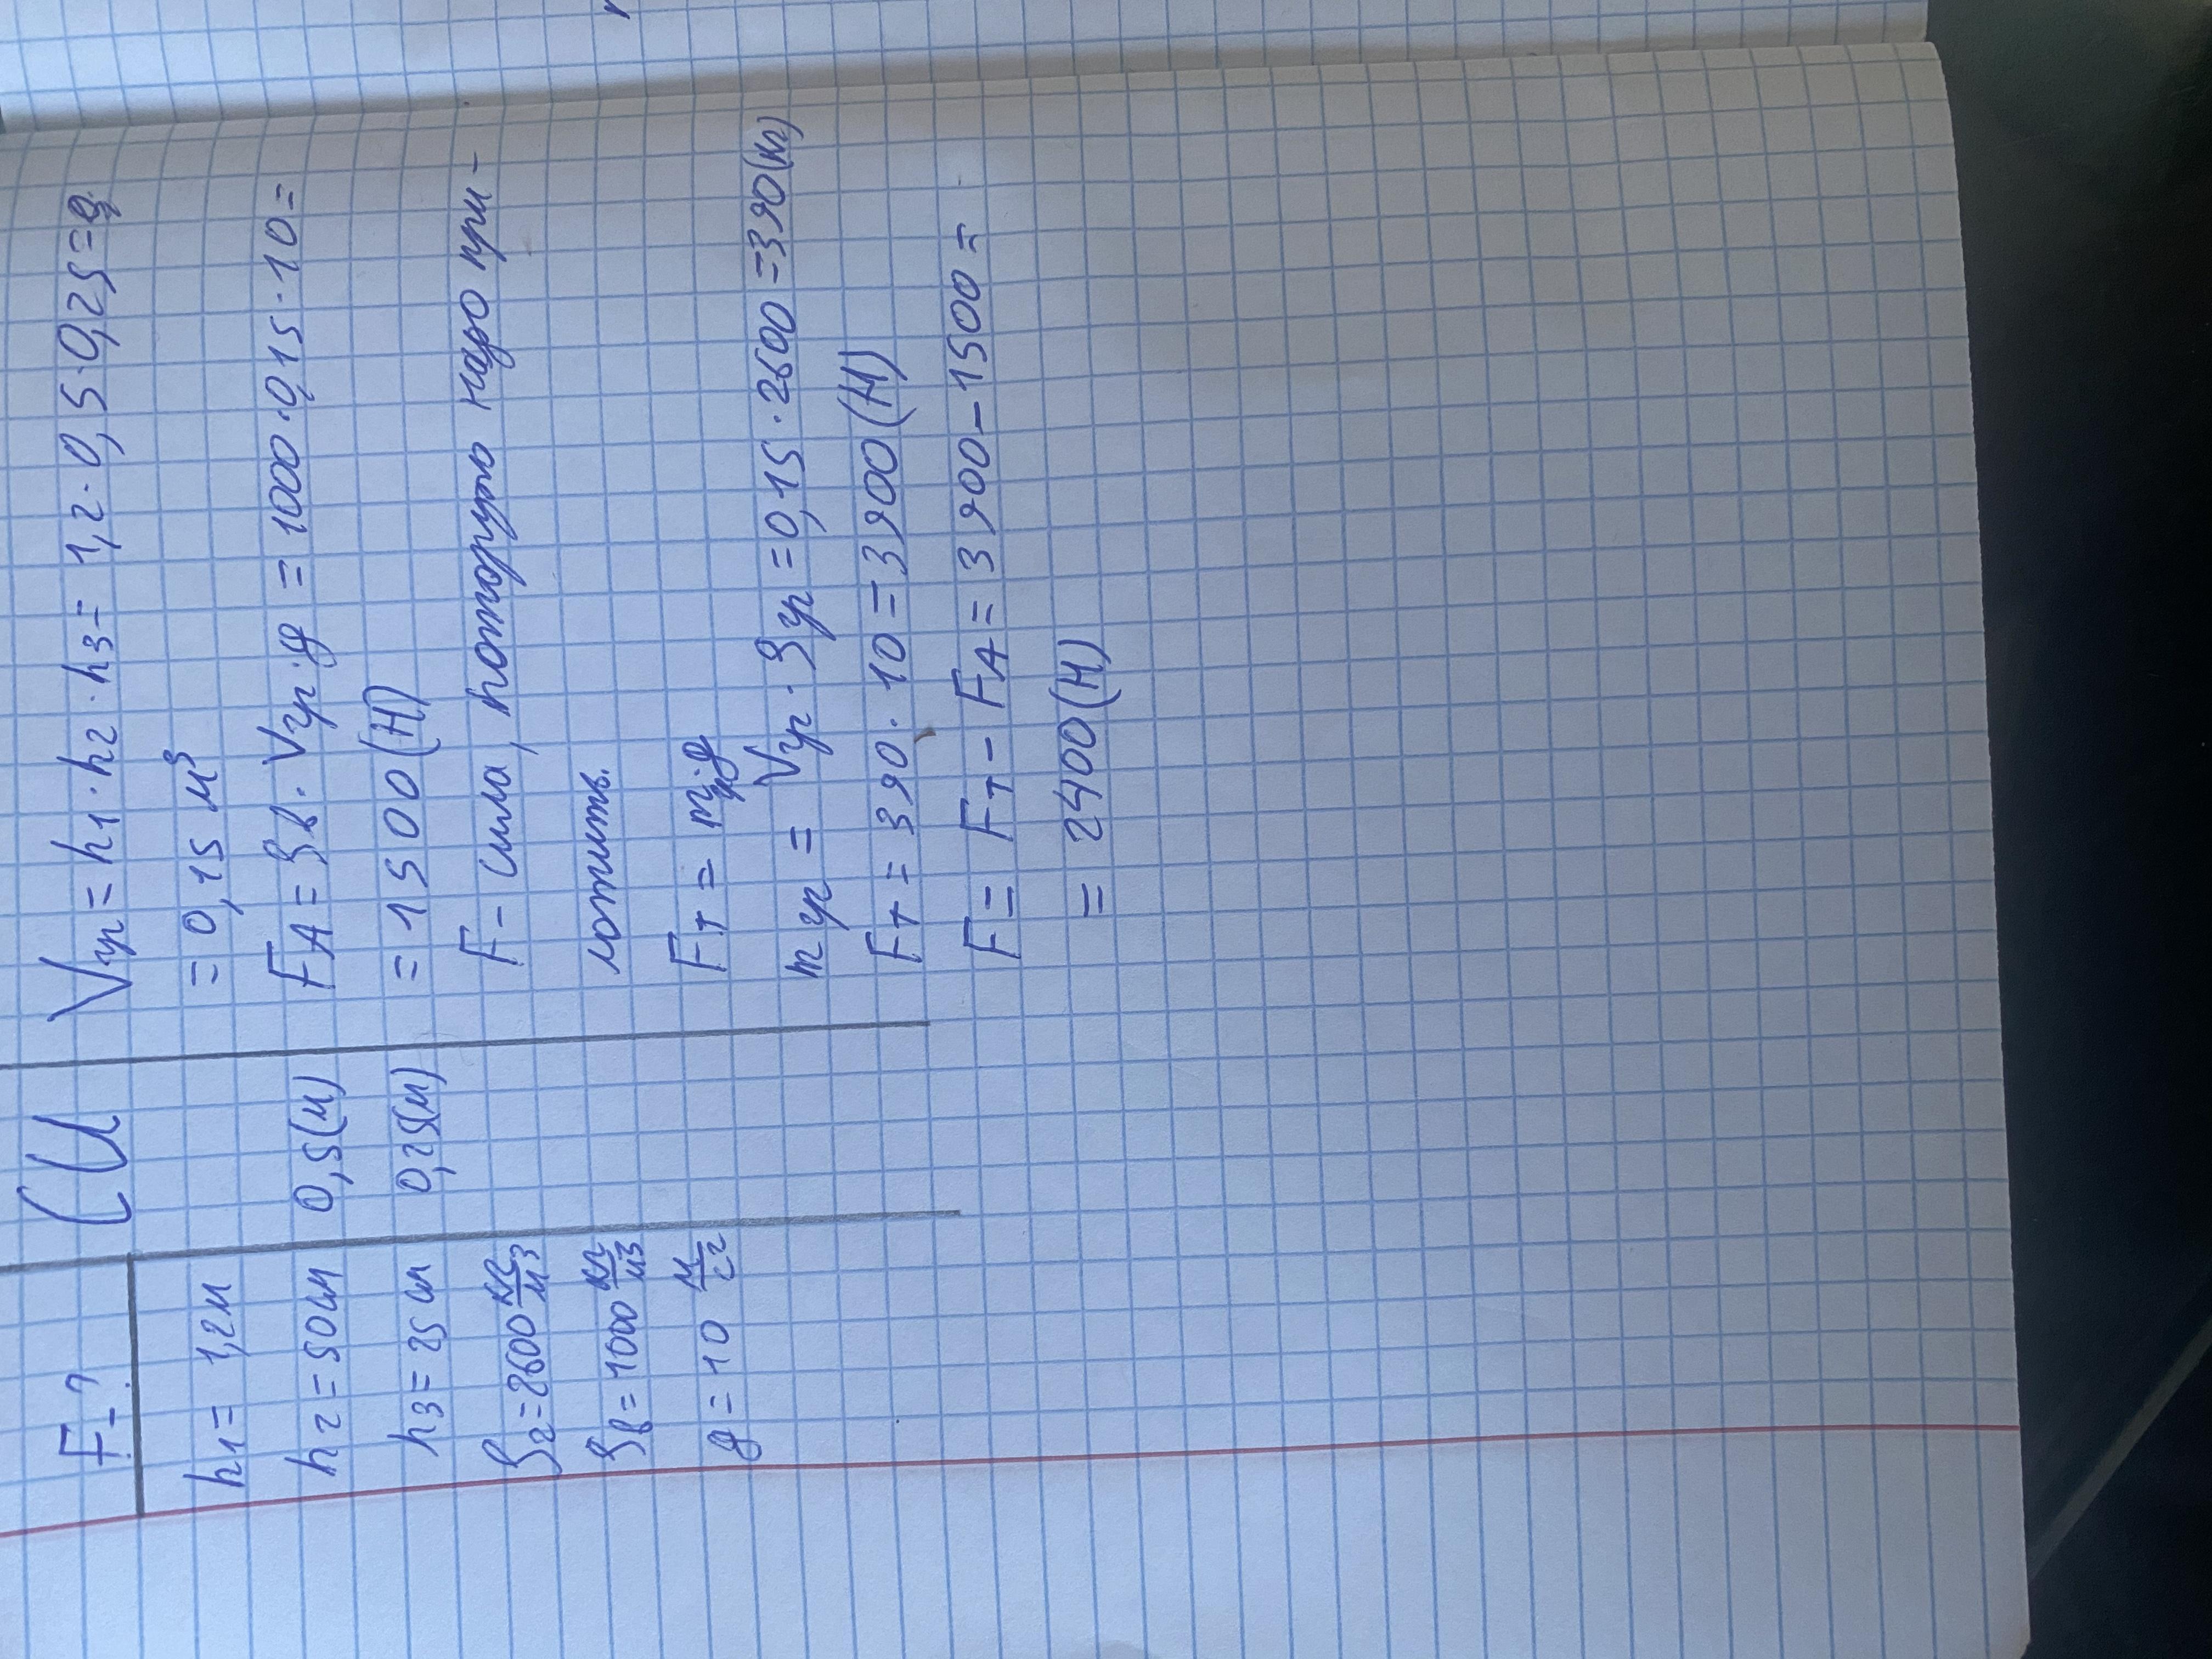 F - ?
h1 = 1,2м
h2 = 50см
h3 = 25см
ρг = 2600 кг/м3
ρв = 1000 кг/м3
g = 10 м/с2
СИ
0,5(м)
0,25(м)
Vгр = h1 · h2 · h3 = 1,2 · 0,5 · 0,25 =
= 0,15 м3
FA = ρв · Vгр · g = 1000 · 0,15 · 10 =
= 1500(Н)
F - сила, которую надо при-
ложить.
Fт = mгр g
mгр = Vгр · ρгр = 0,15 · 2600 = 390(кг)
Fт = 390 · 10 = 3900(Н)
F = Fт - FA = 3900 - 1500 =
= 2400(Н)